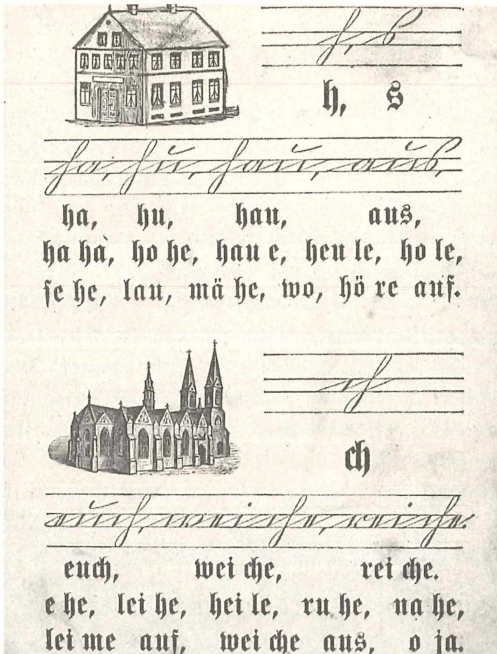 h, s
h, s
ha, hu, hau, aus,
ha, hu, hau, aus,
ha ha, ho he, hau e, heu le, ho le,
ſe he, lau, mä he, wo, hö re auf.
ch
ch
euch, weiche, reiche.
euch, wei che, rei che.
e he, lei he, hei le, ru he, na he,
lei me auf, wei che aus, o ja.